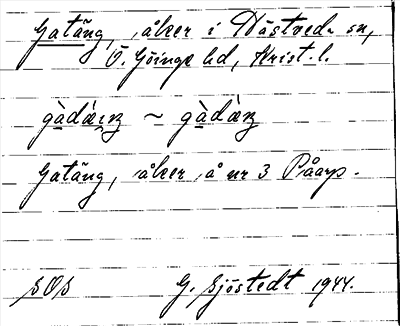 Gatäng, åker i Nästveds sn,
Ö. Göinge hd, Krist. l.
gàdä́ŋ ~ gàdáŋ
Gatäng, åker å nr 3 Påarp.
SOS G. Sjöstedt 1944.